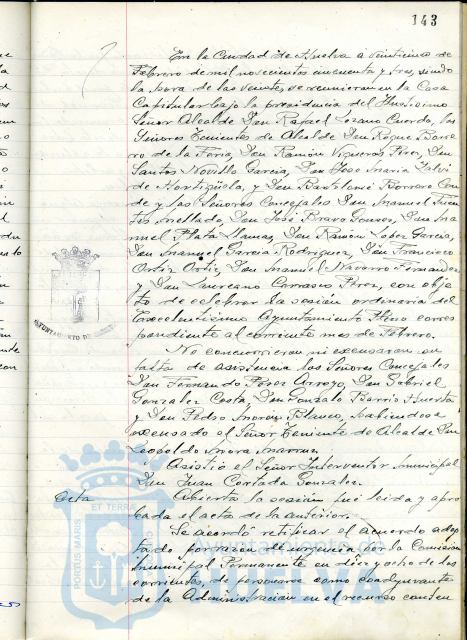 143
En la Ciudad de Huelva a veinticinco de
Febrero de mil novecientos cincuenta y tres, siendo
la hora de las veinte, se reunieron en la Casa
Capitular bajo la presidencia del Ilustrisimo
Señor Alcalde Don Rafael Lozano Cuerda, los
Señores Tenientes de Alcalde Don Roque Barre
ro de la Feria, Don Ramón Vigueras Pérez, Don
Santos Novillo Garcia, Don José Maria
de Hortigüela, y Don Bartolomé Borrero Con
de y los Señores Concejales Don Manuel Fuen
tes Mellado, Don José Bravo Don Ma
nuel Plata Llamas, Don Ramón López Garcia,
Don Manuel Garcia Rodriguez, Don Francisco
Ortiz Ortiz, Don Manuel Navarro Fernandez
y Don Laureano Carrasco Pérez, con obje
to de celebrar la sesión ordinaria del
Excelentisimo Ayuntamiento Pleno corres
pondiente al corriente mes de Febrero.
No concurrieron ni excusaron su
falta de asistencia los Señores Concejales
Don Fernando Pérez Arroyo, Don Gabriel
Gonzalez Costa, Don Gonzalo Barrio Huerta
y Don Pedro Blanco, habiendose
excusado el Señor Teniente de Alcalde Don
Leopoldo Mora
Asistió el Señor Interventor Municipal
Don Juan Cortada Gonzalez.
Acta Abierta la sesión fué leida y apro
bada el acta de la anterior.
Se acordó ratificar el acuerdo adop
tado por razón de urgencia por la Comisión
Municipal Permanente en diez y ocho de los
corrientes, de personarse como coadyuvante
de la Administración en el recurso conten
AYUNTAMIENTO DE
PORTUS MARIS
ET TERRAE
Ayuntamiento de